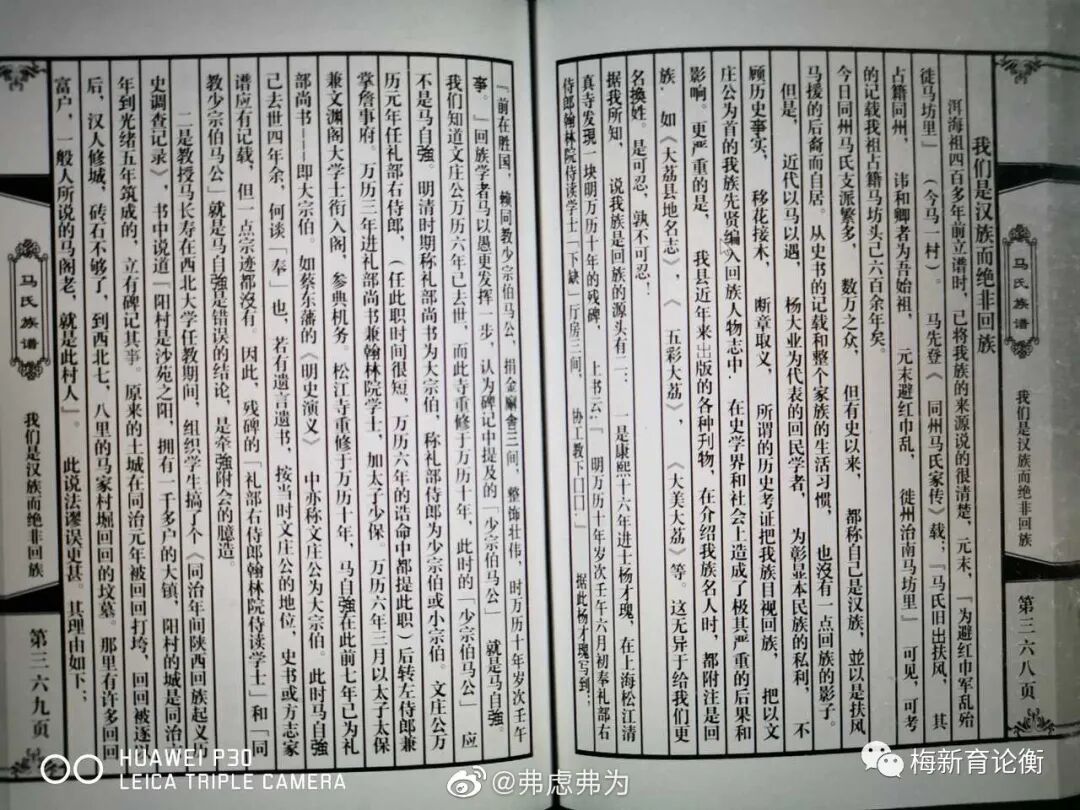 我们是汉族而绝非回族
洱海祖四百多年前立谱时，已将我族的来源说的很清楚，元末，「为避红巾军乱殆
徒马坊里」（今马一村）。马先登《同州马氏家传》载，「马氏旧出扶风，其
占籍同州，讳和卿者为吾始祖，元末避红巾乱，徙州治南马坊里」可见，可考
的记载我祖占籍马坊头己六百余年矣。
今日同州马氏支派繁多，数万之众，但有史以来，都称自己是汉族，並以是扶风
马援的后裔而自居。从史书的记载和整个家族的生活习惯，也沒有一点回族的影子。
但是，近代以马以遇，杨大业为代表的回民学者，为彰显本民族的私利，不
顾历史事实，移花接木，断章取义，所谓的历史考证把我族目视回族，把以文
庄公为首的我族先贤编入回族人物志中，在史学界和社会上造成了极其严重的后果和
影响。更严重的是，我县近年来出版的各种刋物，在介绍我族名人时，都附注是回
族，如《大荔县地名志》，《五彩大荔》、《大美大荔》等。这无异于给我们更
名換姓。是可忍，孰不可忍！
据我所知，说我族是回族的源头有二：一是康熙十六年进士杨才瑰，在上海松江清
真寺发现一块明万历十年的残碑，上书云：「明万历十年岁次壬午六月初奉礼部右
侍郎翰林院侍读学士「下缺」厅房三间，协工教下囗囗。据此杨才瑰写到；
「前在胜国，赖同教少宗伯马公，捐金廨舍三间，整饰壮伟，时万历十年岁次壬午
事。」回族学者马以愚更发挥一步，认为碑记中提及的「少宗伯马公」就是马自強。
我们知道文庄公万历六年己去世，而此寺重修于万历十年，此时的「少宗伯马公」应
不是马自強。明清时期称礼部尚书为大宗伯，称礼部侍郎为少宗伯或小宗伯。文庄公万
历元年任礼部右侍郎，（任此职时间很短，万历六年的浩命中都提此职）后转左侍郎兼
掌詹事府。万历三年进礼部尚书兼翰林院学士，加太子少保。万历六年三月以太子太保
兼文渊阁大学士衔入阁，参典机务。松江寺重修于万历十年，马自強在此前七年己为礼
部尚书——即大宗伯。如蔡东藩的《明史演义》中亦称文庄公为大宗伯。此时马自強
己去世四年余，何谈「奉」也，若有遗言遗书，按当时文庄公的地位，史书或方志家
谱应有记载，但一点宗迹都沒有。因此，残碑的「礼部右侍郎翰林院侍读学士」和「同
教少宗伯马公」就是马自強是错误的结论，是牵強附会的臆造。
二是教授马长寿在西北大学任教期间，组织学生搞了个《同治年间陕西回族起义历
史调查记录》，书中说道「阳村是沙苑之阳，拥有一千多户的大镇，阳村的城是同治
年到光绪五年筑成的，立有碑记其事。原来的土城在同治元年被回回打垮，回回被逐
后，汉人修城，砖石不够了，到西北七，八里的马家村堀回回的坟墓。那里有许多回回
富户，一般人所说的马阁老，就是此村人」。此说法谬误更甚。其理由如下：
马氏族谱
我们是汉族而绝非回族
第三六八页
马氏族谱
我们是汉族而绝非回族
第三六九页
HUAWEI P30
LEICA TRIPLE CAMERA
@弗虑弗为
梅新育论衡